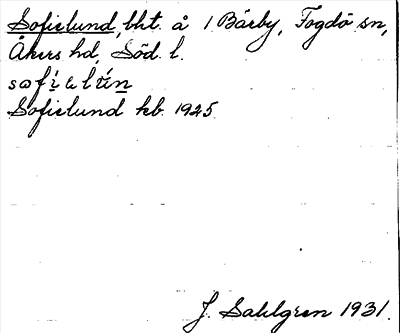 Sofielund, lht. å 1 Bärby, Fogdö sn,
Åkers hd, Söd. l.
Sofielund kb 1925
J. Sahlgren 1931.